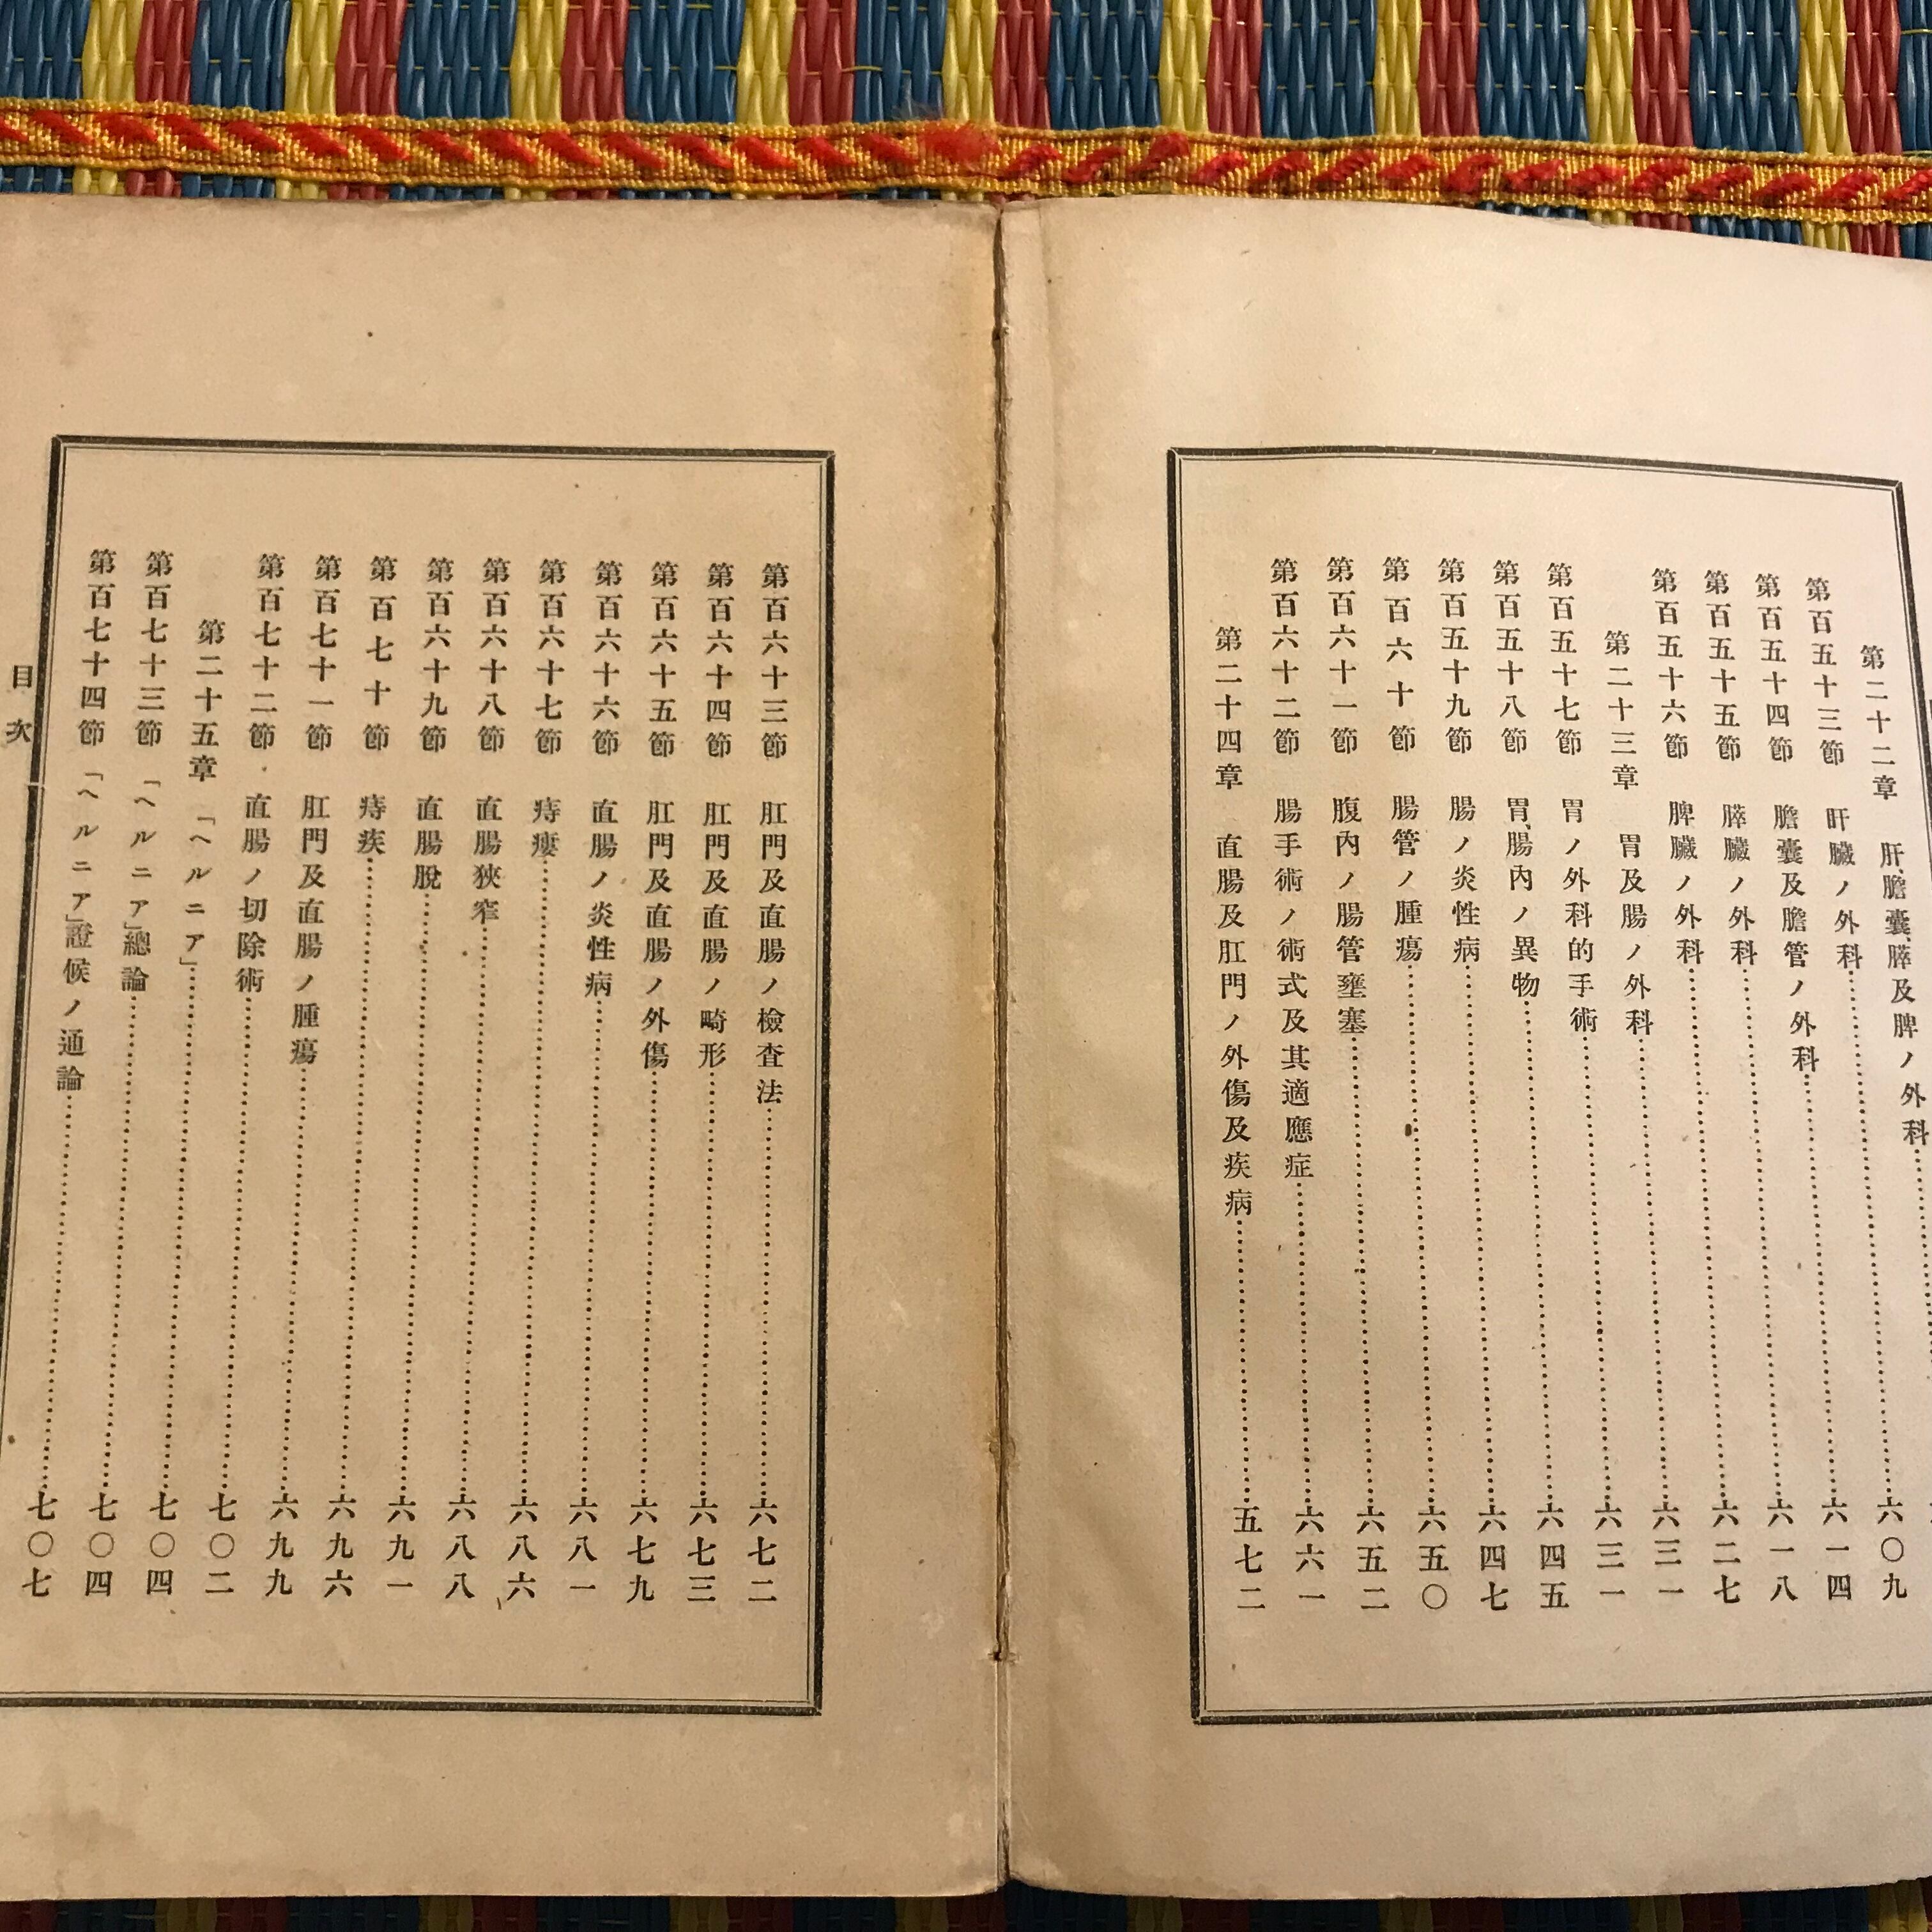 第二十二章 肝、膽囊、膵及脾ノ外科
第百五十三節 肝臟ノ外科……六〇九
第百五十四節 膽囊及膽管ノ外科……六一四
第百五十五節 膵臟ノ外科……六一八
第百五十六節 脾臟ノ外科……六二七
第二十三章 胃及腸ノ外科……六三一
第百五十七節 胃ノ外科的手術……六三一
第百五十八節 胃、腸內ノ異物……六四五
第百五十九節 腸ノ炎性病……六四七
第百六十節 腸管ノ腫瘍……六五〇
第百六十一節 腹內ノ腸管壅塞……六五二
第百六十二節 腸手術ノ術式及其適應症……六六一
第二十四章 直腸及肛門ノ外傷及疾病……五七二
第百六十三節 肛門及直腸ノ檢查法……六七二
第百六十四節 肛門及直腸ノ畸形……六七三
第百六十五節 肛門及直腸ノ外傷……六七九
第百六十六節 直腸ノ炎性病……六八一
第百六十七節 痔瘻……六八六
第百六十八節 直腸狹窄……六八八
第百六十九節 直腸脫……六九一
第百七十節 痔疾……六九六
第百七十一節 肛門及直腸ノ腫瘍……六九九
第百七十二節 直腸ノ切除術……七〇二
第二十五章 「ヘルニア」……七〇四
第百七十三節 「ヘルニア」總論……七〇四
第百七十四節 「ヘルニア」證候ノ通論……七〇七
目次